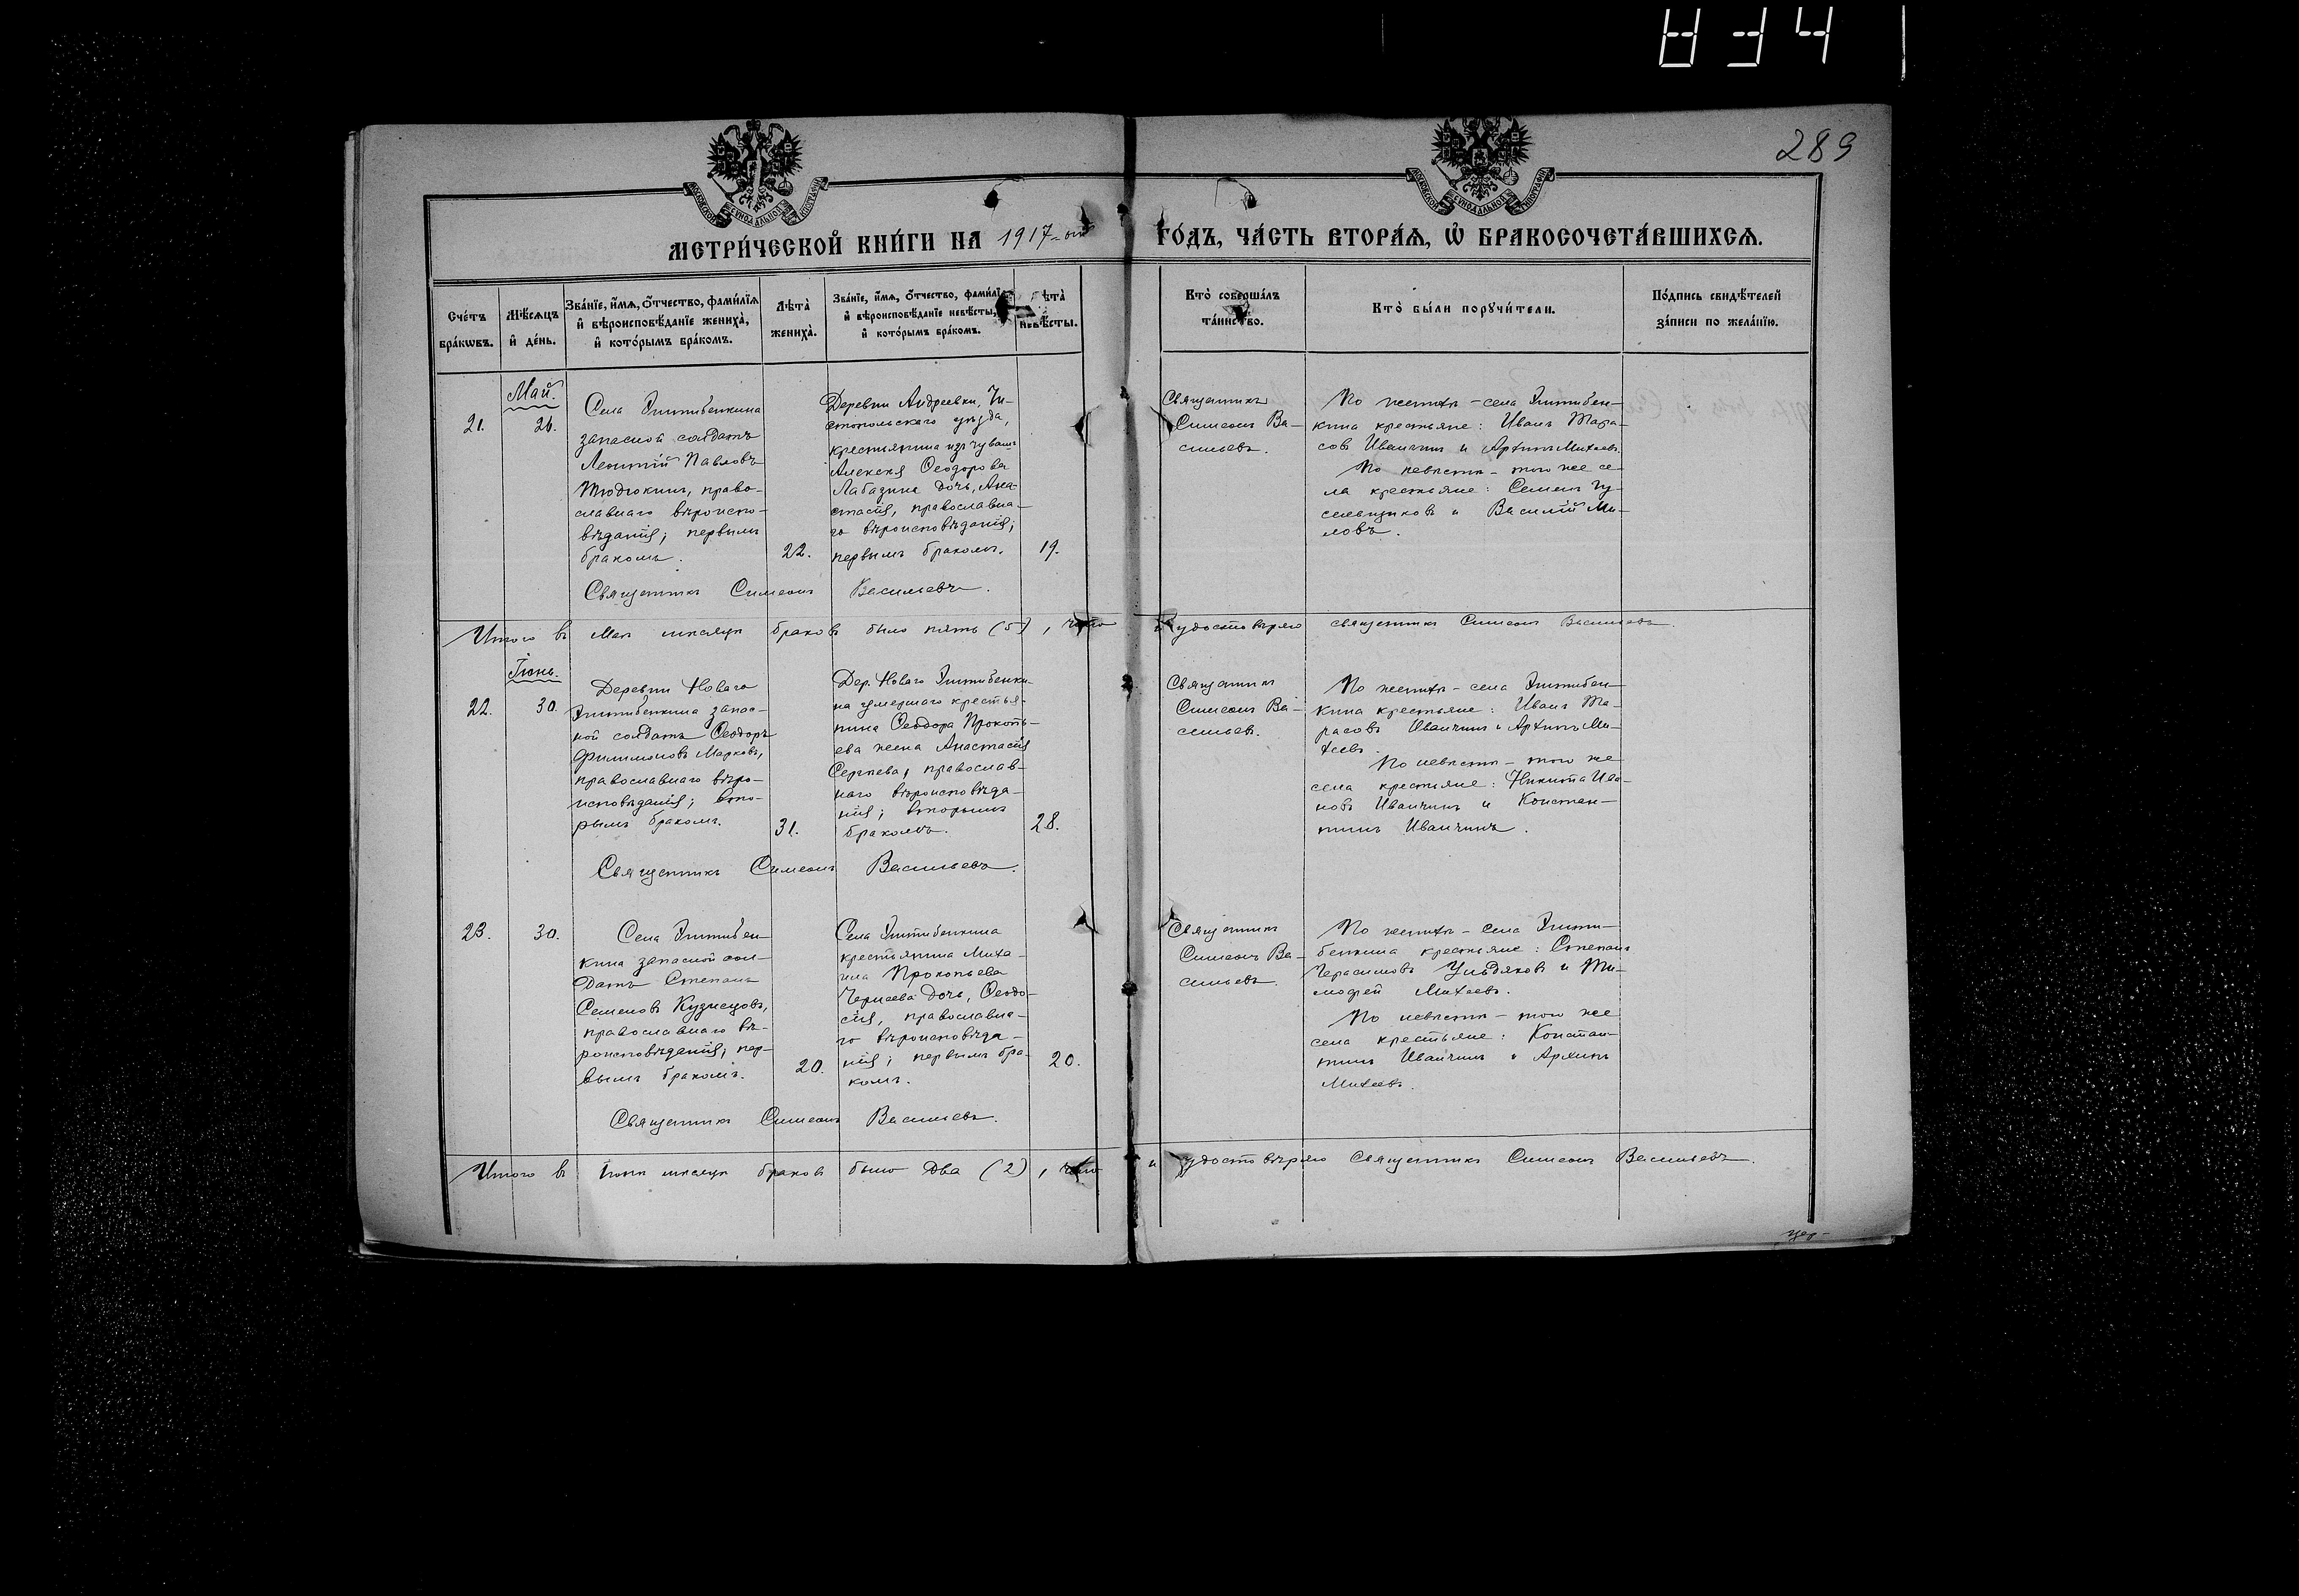 289
МЕТРИ́ЧЕСКОЙ КНИ́ГИ НА 1917-ый ГО́ДЪ, ЧА́СТЬ ВТОРА́Ѧ, Ѽ БРАКОСОЧЕТА́ВШИХСѦ.
Сче́тъ бра́кѡвъ.
Мѣ́сѧцъ и҆ де́нь.
Зва́нїе, и҆́мѧ, ѻ҆́тчество, фами́лїѧ
и҆ вѣроисповѣ́данїе жениха̀,
и҆ кото́рымъ бра́комъ.
Лѣта̀ жениха̀.
Зва́нїе, и҆́мѧ, ѻ҆́тчество, фами́лїѧ
и҆ вѣроисповѣ́данїе невѣ́сты,
и҆ кото́рымъ бра́комъ.
Лѣта̀ невѣ́сты.
Кто̀ соверша́лъ
та́инство.
Кто̀ бы́ли порꙋчи́тели.
По́дпись свидѣ́телей
за́писи по жела́нїю.
Май.
21.
26.
Села Эштебенкина
запасной солдатъ
Леонтій Павловъ
Тюдюкинъ, право-
славнаго вѣроиспо-
вѣданія; первымъ
бракомъ.
22.
Деревни Андреевки, Чи-
стопольскаго уѣзда,
крестьянина изъ чувашъ
Алексѣя Ѳеодорова
Лабазина дочь, Ана-
стасія, православна-
го вѣроисповѣданія;
первымъ бракомъ.
19.
Священникъ
Симеонъ Ва-
сильевъ.
По женихѣ – села Эштебен-
кина крестьяне: Иванъ Тара-
совъ Иванчинъ и Архипъ Михеевъ.
По невѣстѣ – того же се-
ла крестьяне: Семенъ
и Василій Ми-
ловъ.
Священникъ Симеонъ Васильевъ.
Итого въ Маѣ мѣсяцѣ браковъ было пять (5), что и удостовѣряю священникъ Симеонъ Васильевъ.
Іюнь.
22.
30.
Деревни Новаго
Эштебенкина запас-
ной солдатъ Ѳеодоръ
Филимоновъ Марковъ,
православнаго вѣро-
исповѣданія; вто-
рымъ бракомъ.
31.
Дер. Новаго Эштебенки-
на умершаго крестья-
нина Ѳеодора Прокопь-
ева жена Анастасія
Сергѣева, православ-
наго вѣроисповѣда-
нія; вторымъ
бракомъ.
28.
Священникъ
Симеонъ Ва-
сильевъ.
По женихѣ – села Эштебен-
кина крестьяне: Иванъ Та-
расовъ Иванчинъ и Архипъ Ми-
хеевъ.
По невѣстѣ – того же
села крестьяне: Никита Ива-
новъ Иванчинъ и Констан-
тинъ Иванчинъ.
Священникъ Симеонъ Васильевъ.
23.
30.
Села Эштебен-
кина запасной сол-
датъ Степанъ
Семеновъ Кузнецовъ,
православнаго вѣ-
роисповѣданія; пер-
вымъ бракомъ.
20.
Села Эштебенкина
крестьянина Миха-
ила Прокопьева
Чернеева дочь, Ѳеодо-
сія, православна-
го вѣроисповѣда-
нія; первымъ бра-
комъ.
20.
Священникъ
Симеонъ Ва-
сильевъ.
По женихѣ – села Эште-
бенкина крестьяне: Степанъ
Герасимовъ Ульдяковъ и Ти-
мофей Михеевъ.
По невѣстѣ – того же
села крестьяне: Констан-
тинъ Иванчинъ и Архипъ
Михеевъ.
Священникъ Симеонъ Васильевъ.
Итого въ Іюнѣ мѣсяцѣ браковъ было два (2), что и удостовѣряю Священникъ Симеонъ Васильевъ.